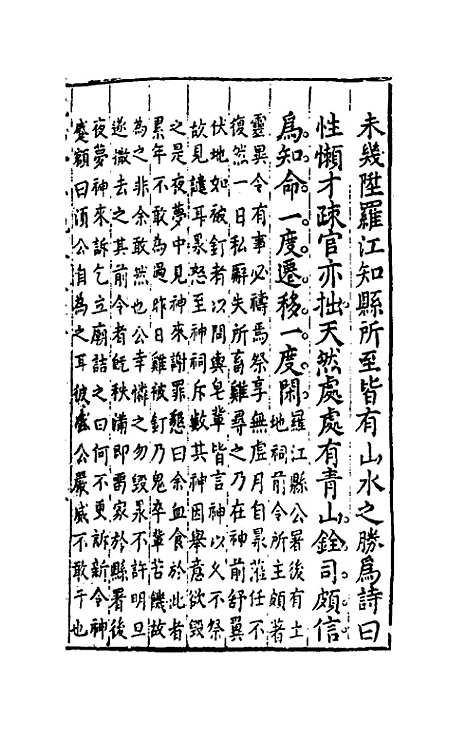 未幾陞羅江知縣所至皆有山水之勝爲詩曰
性懶才疎官亦拙天然處處有青山銓司頗信
爲知命一度遷移一度閑羅江縣公署後有土
地祠前令所主頗著
靈異令有事必禱焉祭享無虛月自晁蒞任不
復然一日私厨失所畜雞尋之乃在神前舒翼
伏地如被釘者以問輿皂輩皆言神以久不祭
故見譴耳晁怒至神祠斥數其神因舉意欲毀
之是夜夢中見神來謝罪懇曰余血食於此者
累年不敢為過昨日雞被釘乃鬼卒輩苦饑故
為之非余敢然也公幸憐之勿毀晁不許明旦
遂撤去之其前令者旣秩滿即寓家於縣署後
夜夢神來訴乞立廟詰之曰何不更訴新令神
蹙額曰須公自為之耳彼公嚴威不敢干也